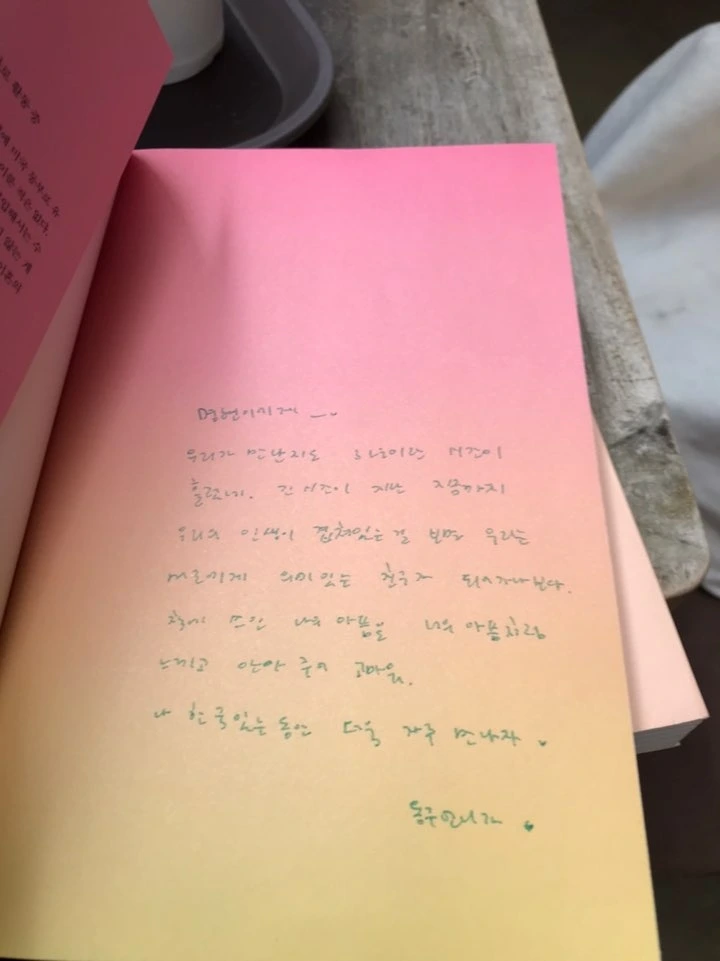 로 활동 중
에 미국 동부로 유
않는 게
우리가 만난지도 시간이
흘렀네. 긴 시간이 지난 지금까지
우리의 인생이 겹쳐있는 걸 보면 우리는
서로에게 의미있는 친구가 되어가나보다.
책에 쓰인 나의 아픔을 너의 아픔처럼
느끼고 안아 주어 고마워.
나 한국있는 동안 더욱 자주 만나자.
동주언니가